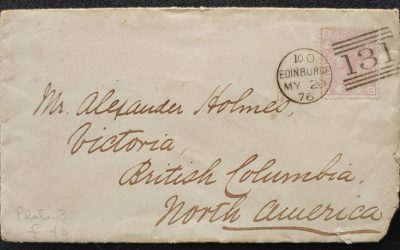 10 0
EDINBURGH
MY 20
76
131
Mr. Alexander Holmes,
Victoria,
British Columbia,
North America
Plate 3
£ 40